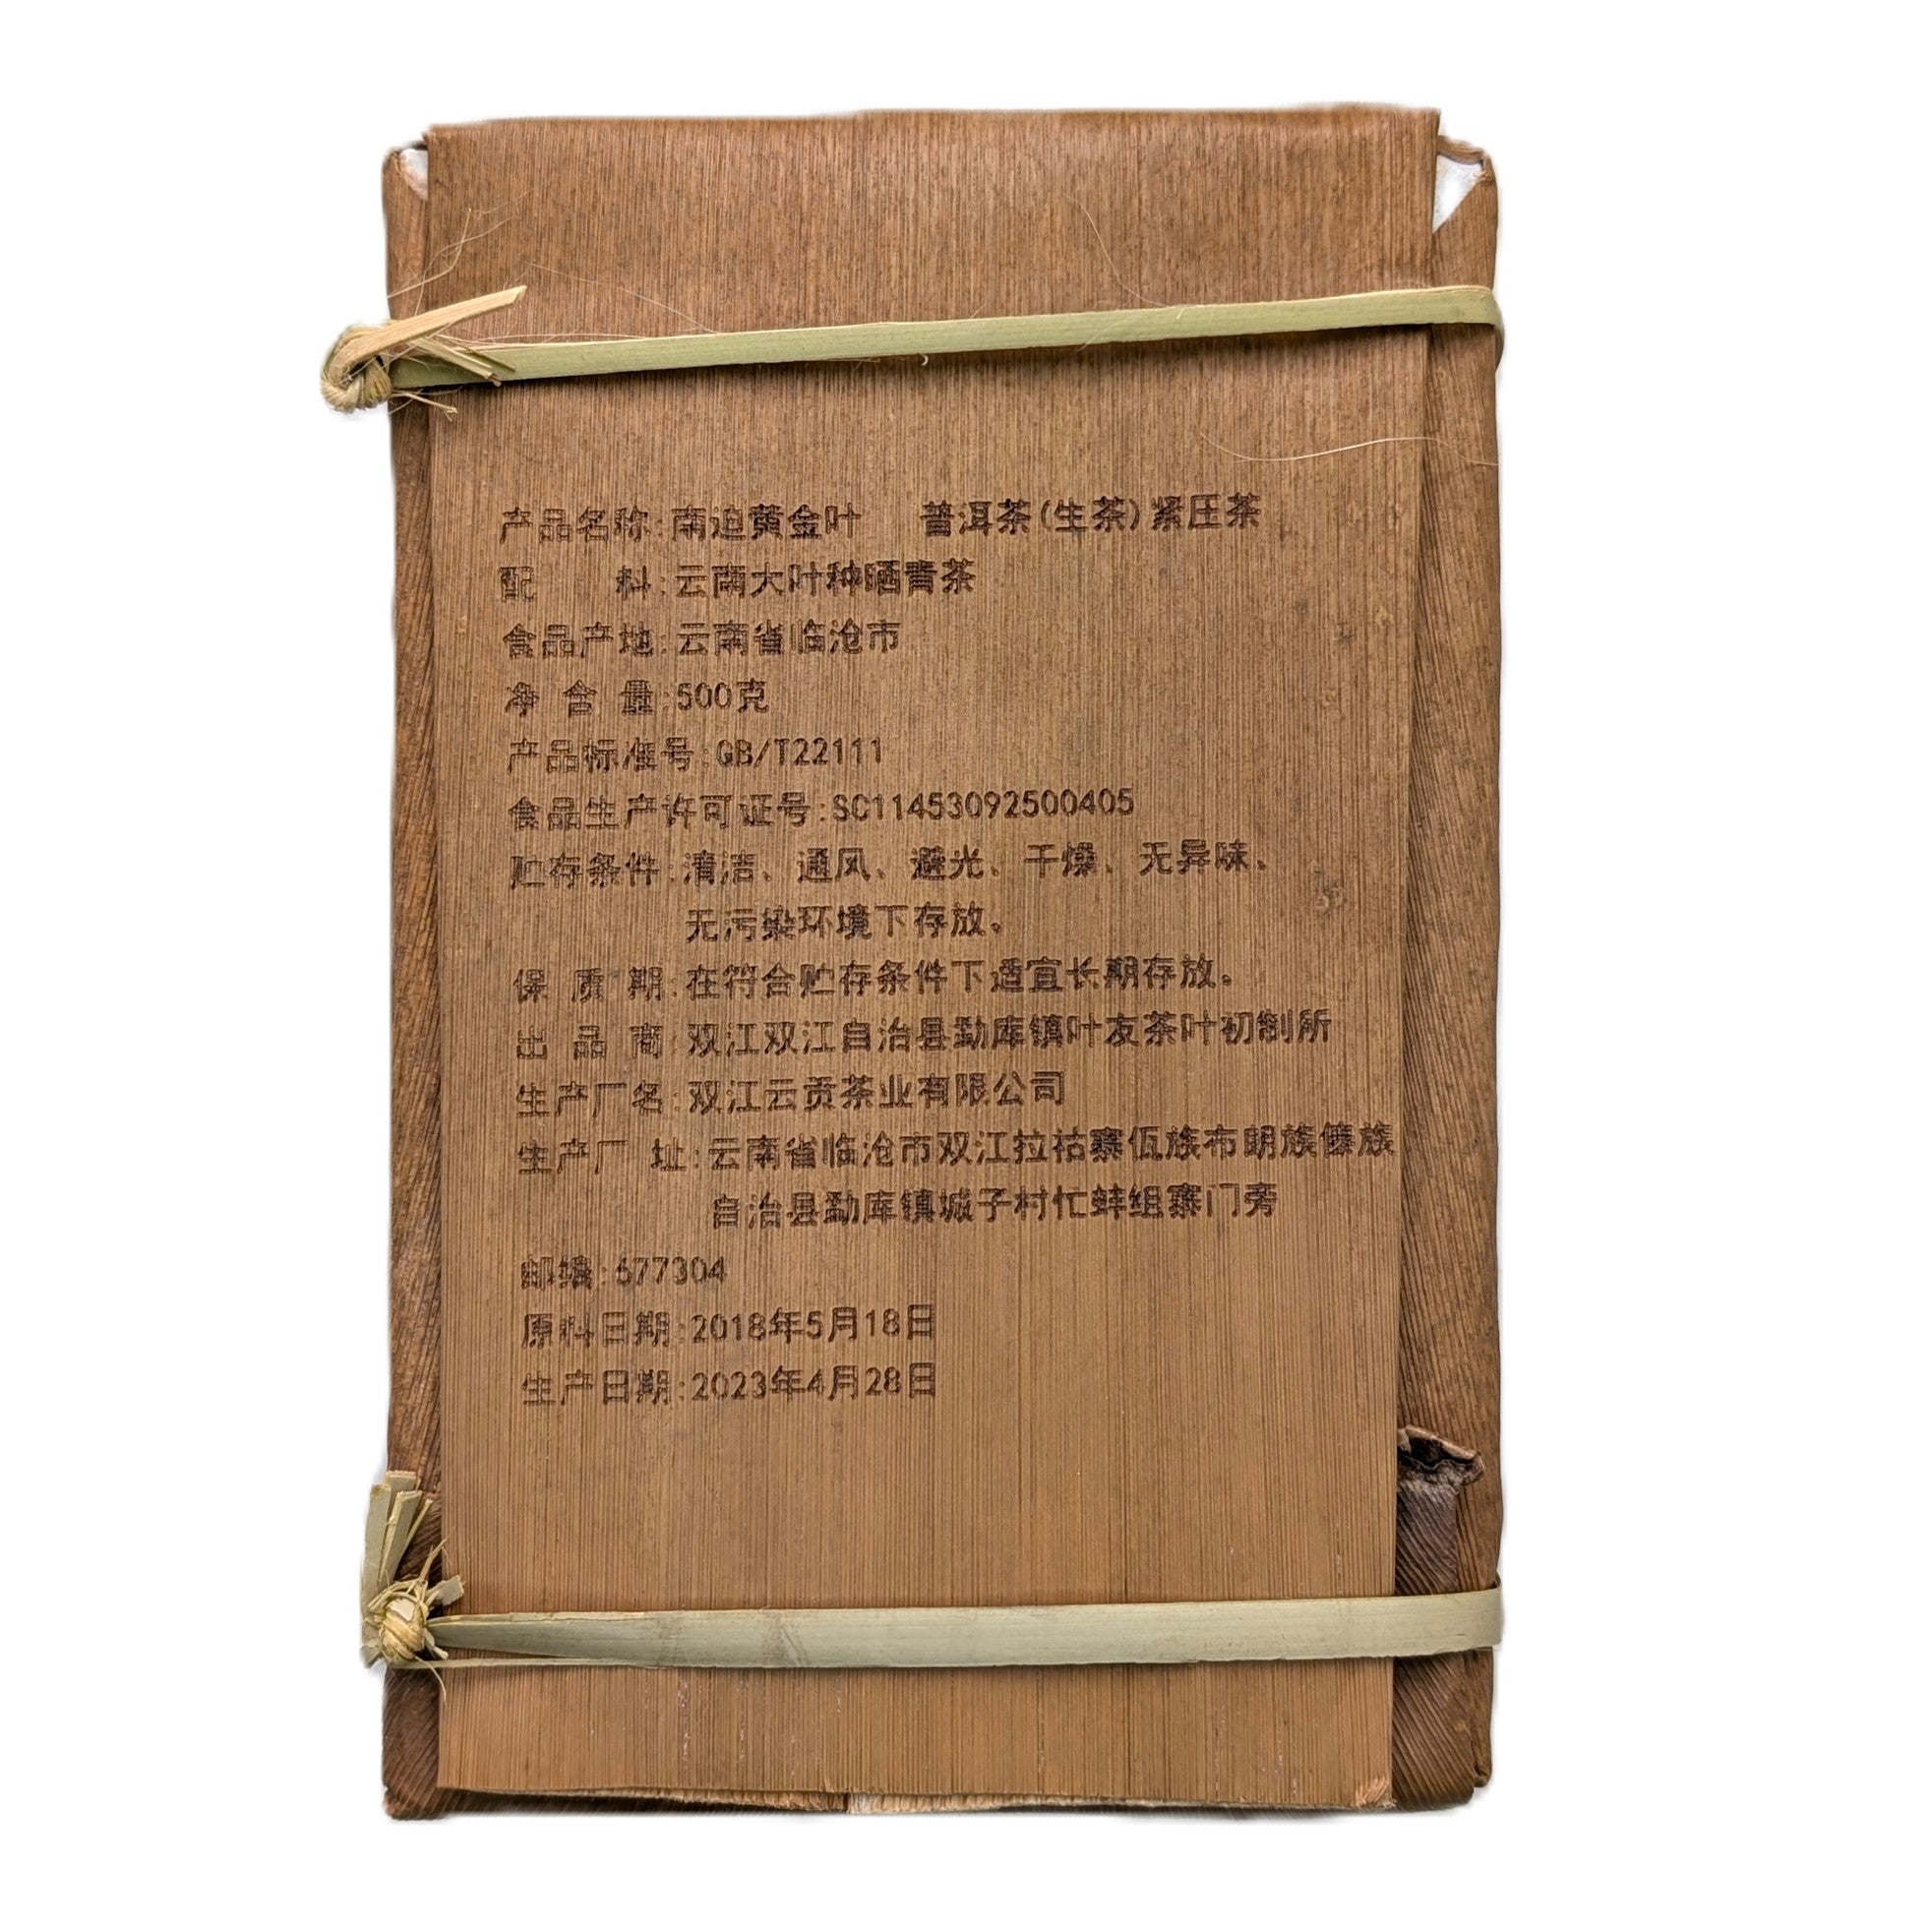 产品名称:南迫黄金叶 普洱茶(生茶)紧压茶
配 料:云南大叶种晒青茶
食品产地:云南省临沧市
净 含 量:500克
产品标准号:GB/T22111
食品生产许可证号:SC11453092500405
贮存条件:清洁、通风、避光、干燥、无异味、
无污染环境下存放。
保 质 期:在符合贮存条件下适宜长期存放。
出 品 商:双江双江自治县勐库镇叶友茶叶初制所
生产厂名:双江云贡茶业有限公司
生产厂 址:云南省临沧市双江拉祜寨佤族布朗族傣族
自治县勐库镇城子村忙蚌组寨门旁
邮编:677304
原料日期:2018年5月18日
生产日期:2023年4月28日